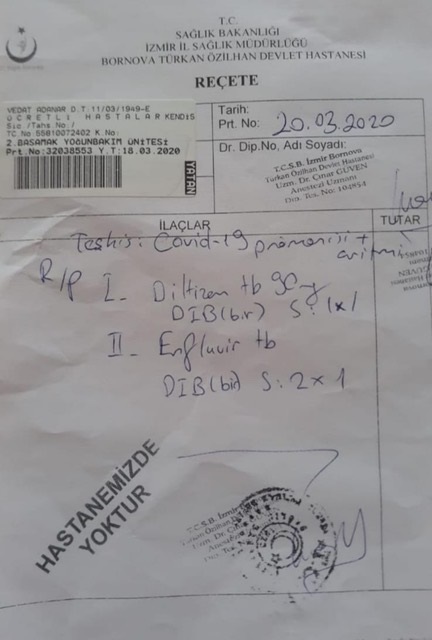 T.C.
SAĞLIK BAKANLIĞI
İZMİR İL SAĞLIK MÜDÜRLÜĞÜ
BORNOVA TÜRKAN ÖZİLHAN DEVLET HASTANESİ
REÇETE
VEDAT ADANAR D.T:11/03/1949-E
ÜCRETLİ HASTALAR KENDİS
Sic./Tahs.No:/
TC.No:55810072402 K.No:
2.BASAMAK YOĞUNBAKIM ÜNİTESİ
Prt.No:32038553 Y.T:18.03.2020
YATAN
Tarih:
Prt. No:
20.03.2020
Dr. Dip.No, Adı Soyadı:
T.C.S.B. İzmir Bornova
Türkan Özilhan Devlet Hastanesi
Uzm. Dr. Çınar GÜVEN
Anestezi Uzmanı
Dip. Tes. No: 104854
İLAÇLAR
TUTAR
Teşhis: Covid-19 pnömonisi + aritmi
R/p I- Diltizem tb 90mg
DIB(bir) S: 1x1
II- Enfluvir tb
DIB(bir) S: 2x1
HASTANEMİZDE
YOKTUR
T.C.S.B. İzmir
Türkan Özilhan
Uzm. Dr. Ç